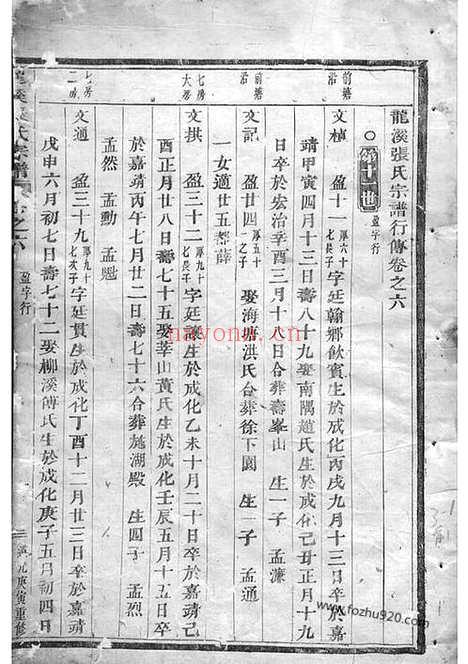 龍溪張氏宗譜行傳卷之六
第十一世 盈字行
前塘沿
文楨 盈十一 厚六十七長子 字廷翰鄉飲賓生於成化丙戌九月十三日卒於嘉
靖甲寅四月十三日壽八十九娶南隅趙氏生於成化己丑正月十九
日卒於宏治辛酉三月十八日合葬壽峯山 生一子 孟濂
前塘沿
文記 盈廿四 厚五十一之子 娶海唐洪氏合葬徐下園 生一子 孟通
一女適廿五都薛
七房大房
文撰 盈三十二 厚九十七長子 生於成化乙未十月二十日卒於嘉靖己
酉正月廿八日壽七十五娶莘山黃氏生於成化壬辰五月十五日卒
於嘉靖丙午七月廿二日壽七十六合葬施湖殿 生四子 孟烈
孟然 孟勳 孟魁
七房二房
文通 盈三十九 厚九十七次子 字廷貫生於成化丁酉十二月廿三日卒於嘉靖
戊申六月初七日壽七十二娶柳溪傅氏生於成化庚子五月初四日
盈字行
庚寅重修
nayona.cn
www.fozhu920.com